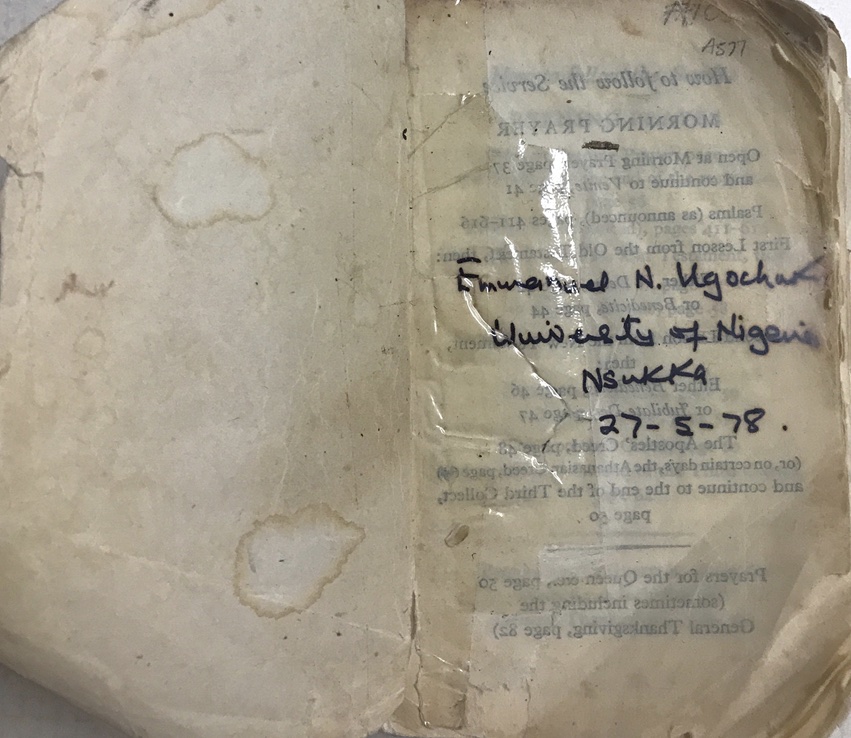 A577
How to follow the Service
MORNING PRAYER
Open at Morning Prayer, page 37
and continue to Venite, page 41
Psalms (as announced), pages 411-616
First Lesson from the Old Testament, then:
Emmanuel N.
or Benedicite, page 44
University of Nigeria
then:
Nsukka
Either Benedictus, page 46
or Jubilate Deo, page 47
27-5-78.
The Apostles' Creed, page 48
(or, on certain days, the Athanasian Creed, page 64)
and continue to the end of the Third Collect,
page 50
Prayers for the Queen etc., page 50
(sometimes including the
General Thanksgiving, page 82)